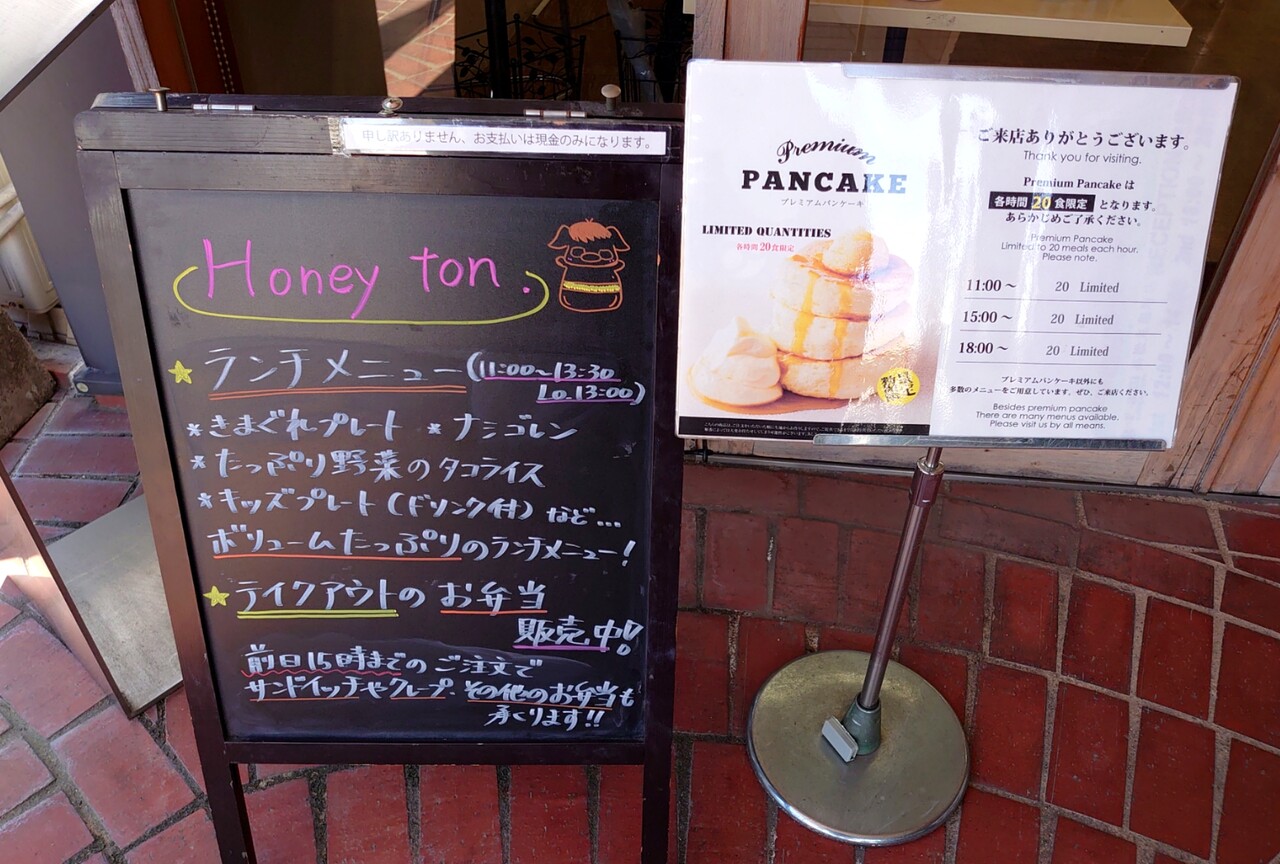 申し訳ありません、お支払いは現金のみになります。
Honey ton.
ランチメニュー(11:00~13:30
L.o.13:00)
*きまぐれプレート *ナシゴレン
*たっぷり野菜のタコライス
*キッズプレート(ドリンク付)など...
ボリュームたっぷりのランチメニュー!
テイクアウトのお弁当
販売中!
前日15時までのご注文で
サンドイッチやクレープ、その他のお弁当も
承ります!!
Premium
PANCAKE
プレミアムパンケーキ
LIMITED QUANTITIES
各時間20食限定
限定
ご来店ありがとうございます。
Thank you for visiting.
Premium Pancake は
各時間 20 食限定 となります。
あらかじめご了承ください。
Premium Pancake
Limited to 20 meals each hour.
Please note.
11:00~ 20 Limited
15:00~ 20 Limited
18:00~ 20 Limited
プレミアムパンケーキ以外にも
多数のメニューをご用意しています。ぜひ、ご来店ください。
Besides premium pancake
There are many menus available.
Please visit us by all means.